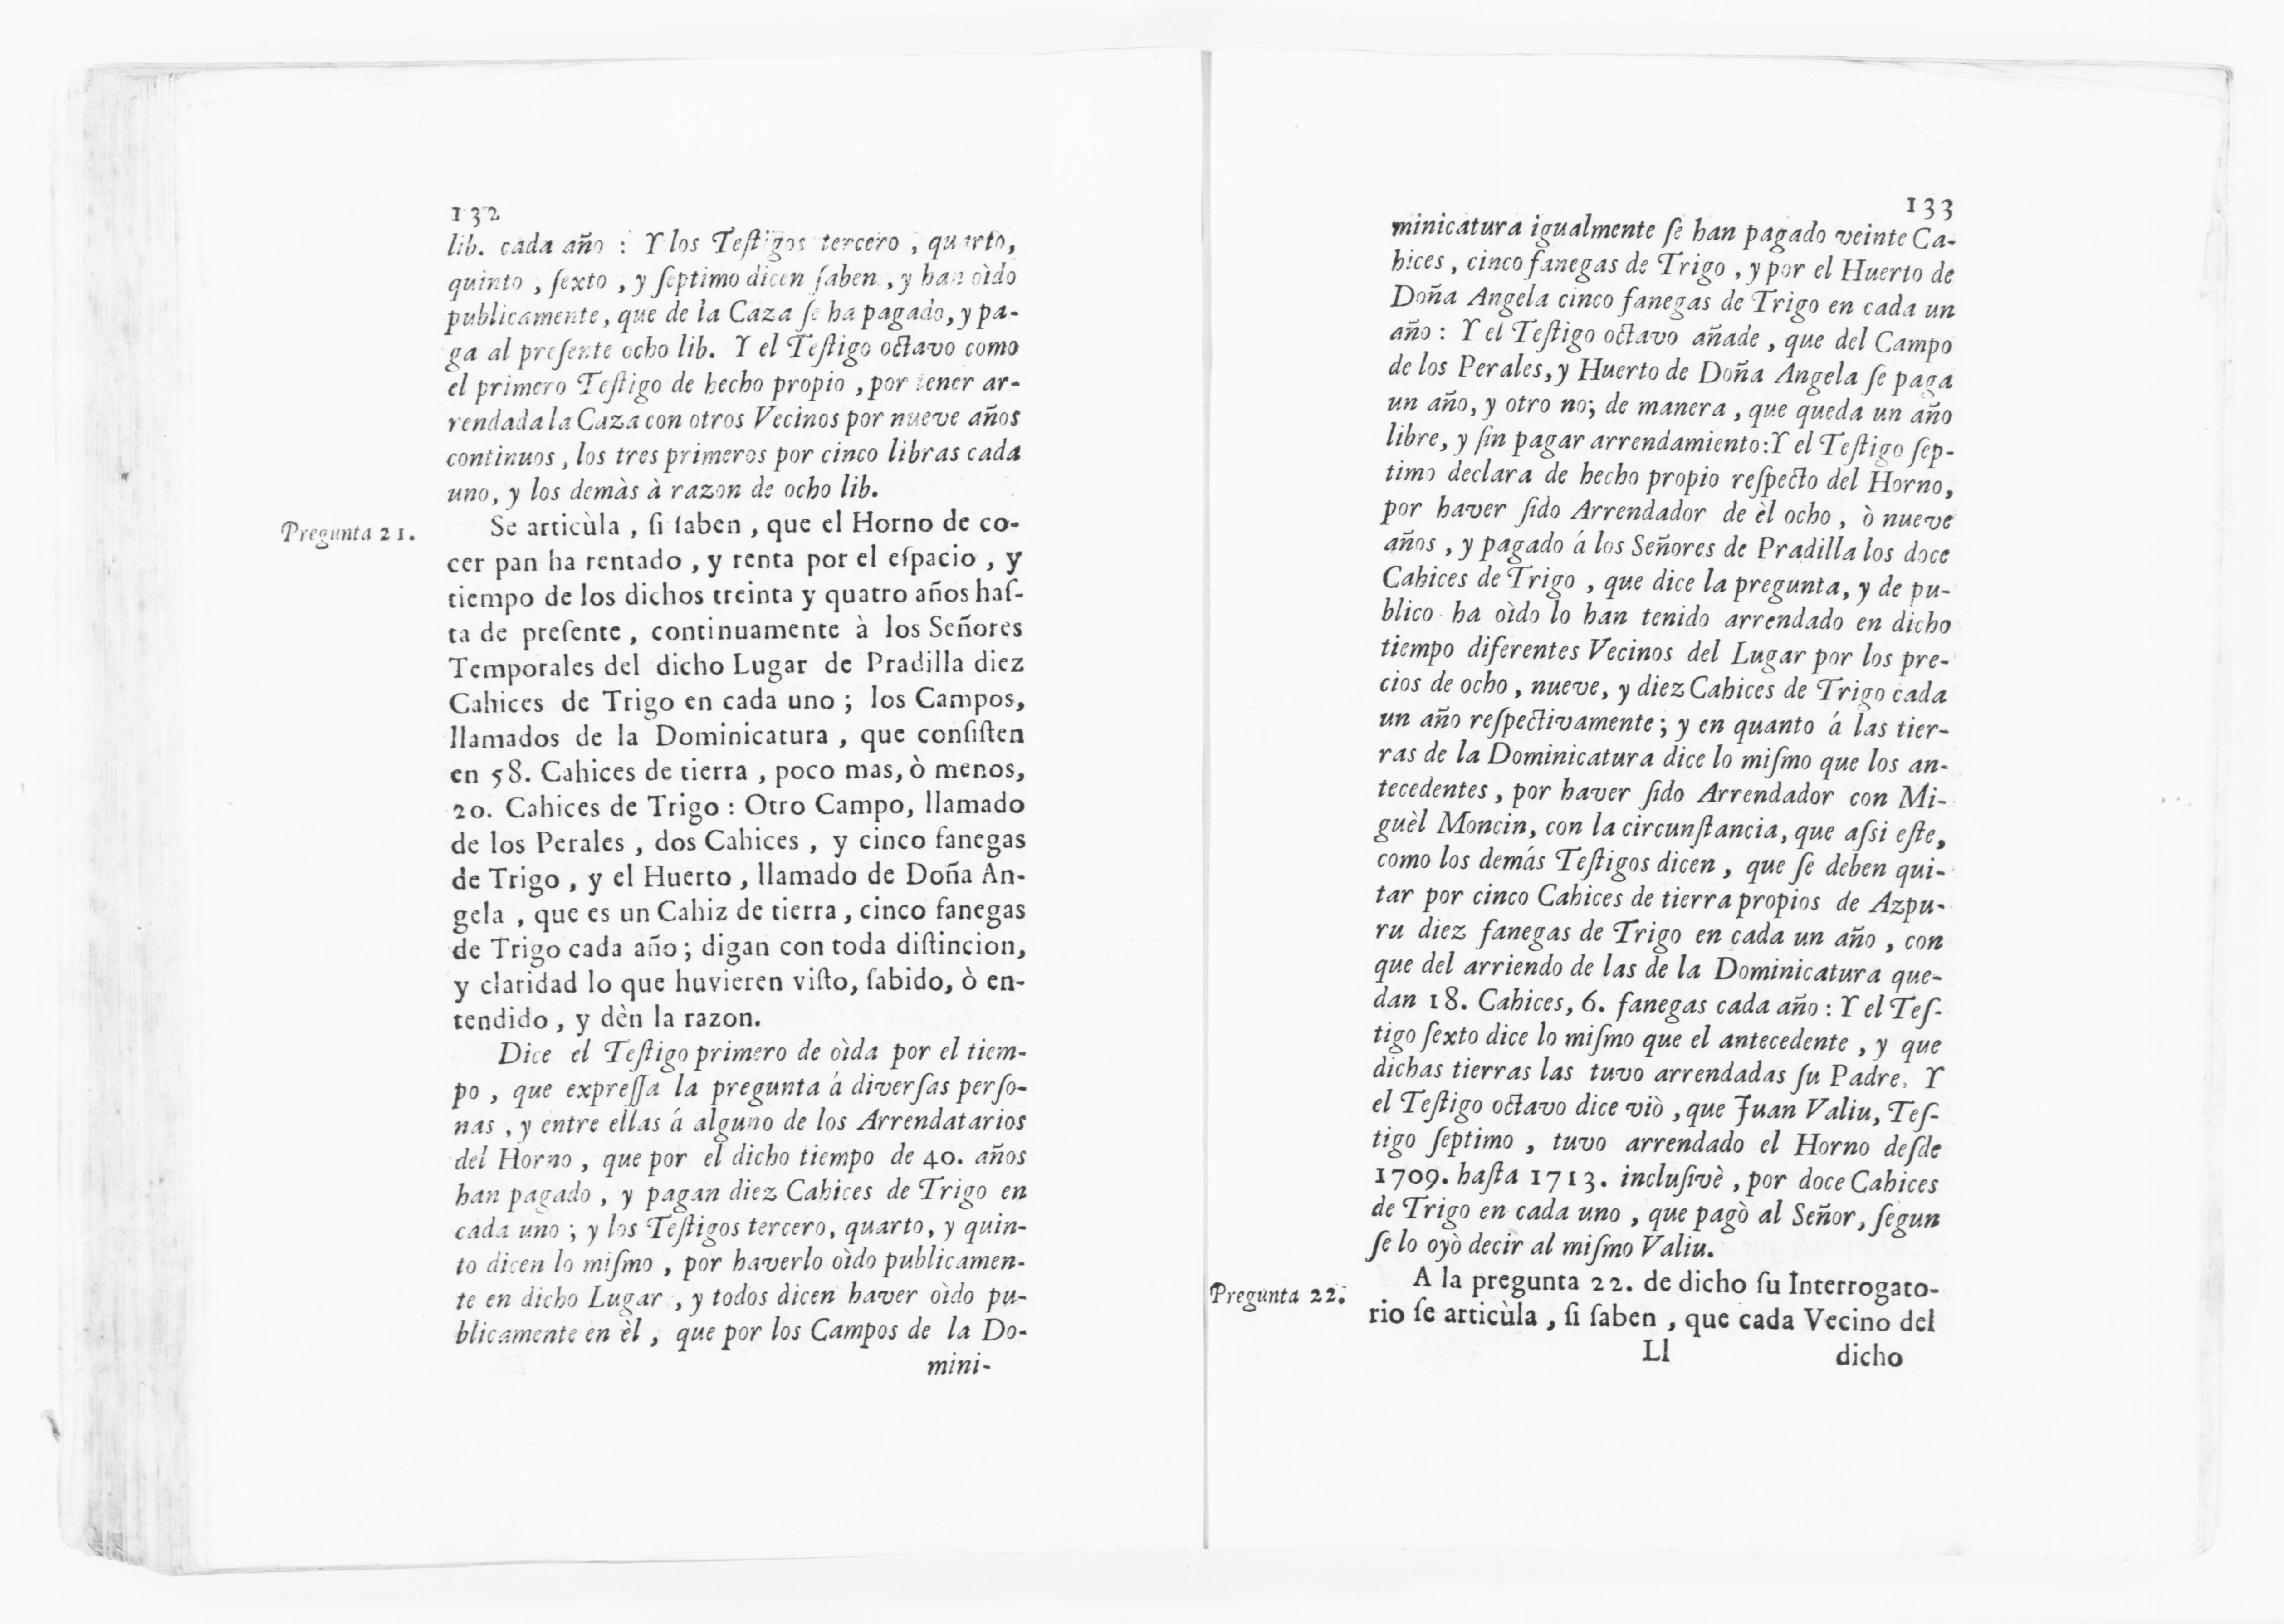 132
lib. cada año : Y los Teſtigos tercero , quarto,
quinto , ſexto , y ſeptimo dicen ſaben , y han oìdo
publicamente, que de la Caza ſe ha pagado, y pa-
ga al preſente ocho lib. Y el Teſtigo octavo como
el primero Teſtigo de hecho propio , por tener ar-
rendada la Caza con otros Vecinos por nueve años
continuos , los tres primeros por cinco libras cada
uno, y los demàs à razon de ocho lib.
Pregunta 21.
Se articùla , ſi ſaben , que el Horno de co-
cer pan ha rentado , y renta por el eſpacio , y
tiempo de los dichos treinta y quatro años haſ-
ta de preſente , continuamente à los Señores
Temporales del dicho Lugar de Pradilla diez
Cahices de Trigo en cada uno ; los Campos,
llamados de la Dominicatura , que conſiſten
en 58. Cahices de tierra , poco mas, ò menos,
20. Cahices de Trigo : Otro Campo, llamado
de los Perales , dos Cahices , y cinco fanegas
de Trigo , y el Huerto , llamado de Doña An-
gela , que es un Cahiz de tierra , cinco fanegas
de Trigo cada año ; digan con toda diſtincion,
y claridad lo que huvieren viſto, ſabido, ò en-
tendido , y dèn la razon.
Dice el Teſtigo primero de oìda por el tiem-
po , que expreſſa la pregunta á diverſas perſo-
nas , y entre ellas á alguno de los Arrendatarios
del Horno , que por el dicho tiempo de 40. años
han pagado , y pagan diez Cahices de Trigo en
cada uno ; y los Teſtigos tercero, quarto, y quin-
to dicen lo miſmo , por haverlo oìdo publicamen-
te en dicho Lugar , y todos dicen haver oìdo pu-
blicamente en èl , que por los Campos de la Do-
mini-
133
minicatura igualmente ſe han pagado veinte Ca-
hices , cinco fanegas de Trigo , y por el Huerto de
Doña Angela cinco fanegas de Trigo en cada un
año : Y el Teſtigo octavo añade , que del Campo
de los Perales, y Huerto de Doña Angela ſe paga
un año, y otro no; de manera , que queda un año
libre, y ſin pagar arrendamiento: Y el Teſtigo ſep-
timo declara de hecho propio reſpecto del Horno,
por haver ſido Arrendador de èl ocho , ò nueve
años , y pagado á los Señores de Pradilla los doce
Cahices de Trigo , que dice la pregunta, y de pu-
blico ha oìdo lo han tenido arrendado en dicho
tiempo diferentes Vecinos del Lugar por los pre-
cios de ocho , nueve, y diez Cahices de Trigo cada
un año reſpectivamente ; y en quanto á las tier-
ras de la Dominicatura dice lo miſmo que los an-
tecedentes , por haver ſido Arrendador con Mi-
guèl Moncin, con la circunſtancia, que aſsi eſte,
como los demás Teſtigos dicen , que ſe deben qui-
tar por cinco Cahices de tierra propios de Azpu-
ru diez fanegas de Trigo en cada un año , con
que del arriendo de las de la Dominicatura que-
dan 18. Cahices, 6. fanegas cada año : Y el Teſ-
tigo ſexto dice lo miſmo que el antecedente , y que
dichas tierras las tuvo arrendadas ſu Padre. Y
el Teſtigo octavo dice viò , que Juan Valiu, Teſ-
tigo ſeptimo , tuvo arrendado el Horno deſde
1709. haſta 1713. incluſivè , por doce Cahices
de Trigo en cada uno , que pagò al Señor, ſegun
ſe lo oyò decir al miſmo Valiu.
Pregunta 22.
A la pregunta 22. de dicho ſu Interrogato-
rio ſe articùla , ſi ſaben , que cada Vecino del
Ll dicho